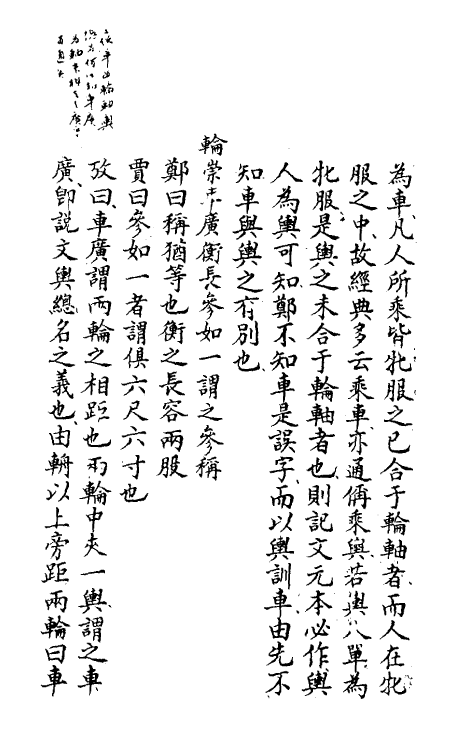 為車凡人所乘皆牝服之已合于輪軸者而人在牝
服之中故經典多云乘車亦通偁乘輿若輿人單為
牝服是輿之未合于輪軸者也則記文元本必作輿
人為輿可知鄭不知車是誤字而以輿訓車由先不
知車與輿之有別也
輪崇車廣衡長參如一謂之參稱
鄭曰稱猶等也衡之長容兩服
賈曰參如一者謂俱六尺六寸也
攷曰車廣謂兩輪之相距也兩輪中夾一輿謂之車
廣卽說文輿總名之義也由輈以上旁距兩輪曰車